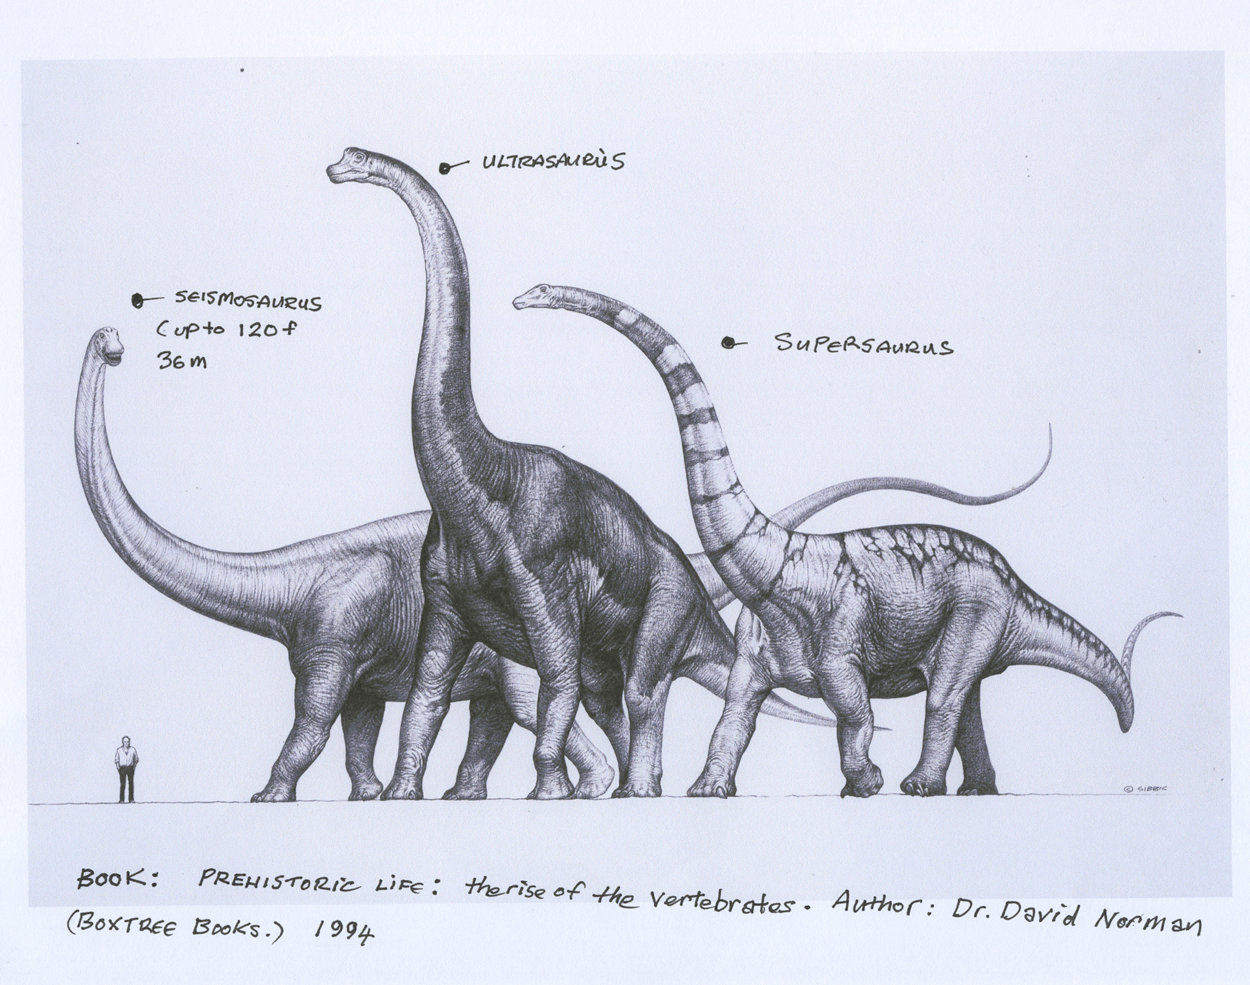 ULTRASAURUS
SEISMOSAURUS
(up to 120 f
36 m
SUPERSAURUS
© SIBBIC
BOOK: PREHISTORIC LIFE: the rise of the vertebrates. Author: Dr. David Norman
(BOXTREE BOOKS.) 1994